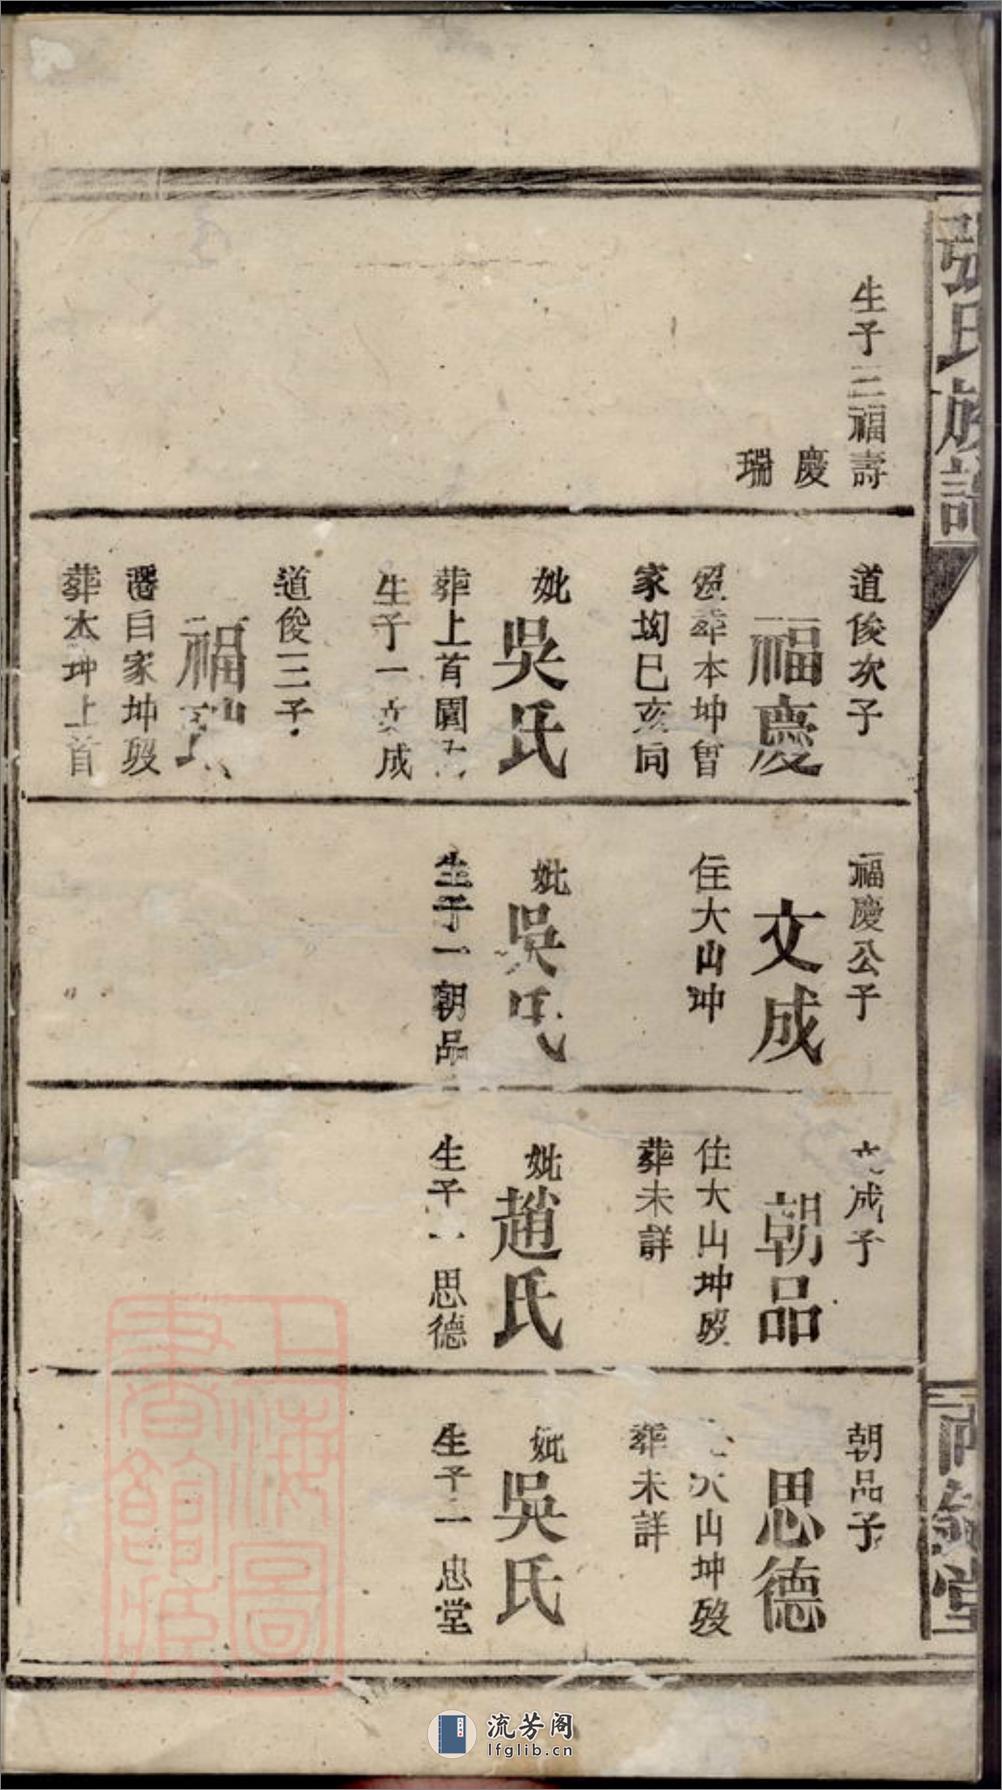 張氏族譜
生子三福壽
慶
瑞
道俊次子
福慶
葬本坤曾
家坳巳亥同
妣
吳氏
葬上首園
生子一文成
道俊三子
福瑞
遷白家坤歿
葬本坤上首
福慶公子
文成
住大山坤
妣
吳氏
生子一朝品
文成子
朝品
住大山坤歿
葬未詳
妣
趙氏
生子一思德
朝品子
思德
大山坤歿
葬未詳
妣
吳氏
生子一忠堂
堂
上海圖書館藏
流芳阁
lfglib.cn